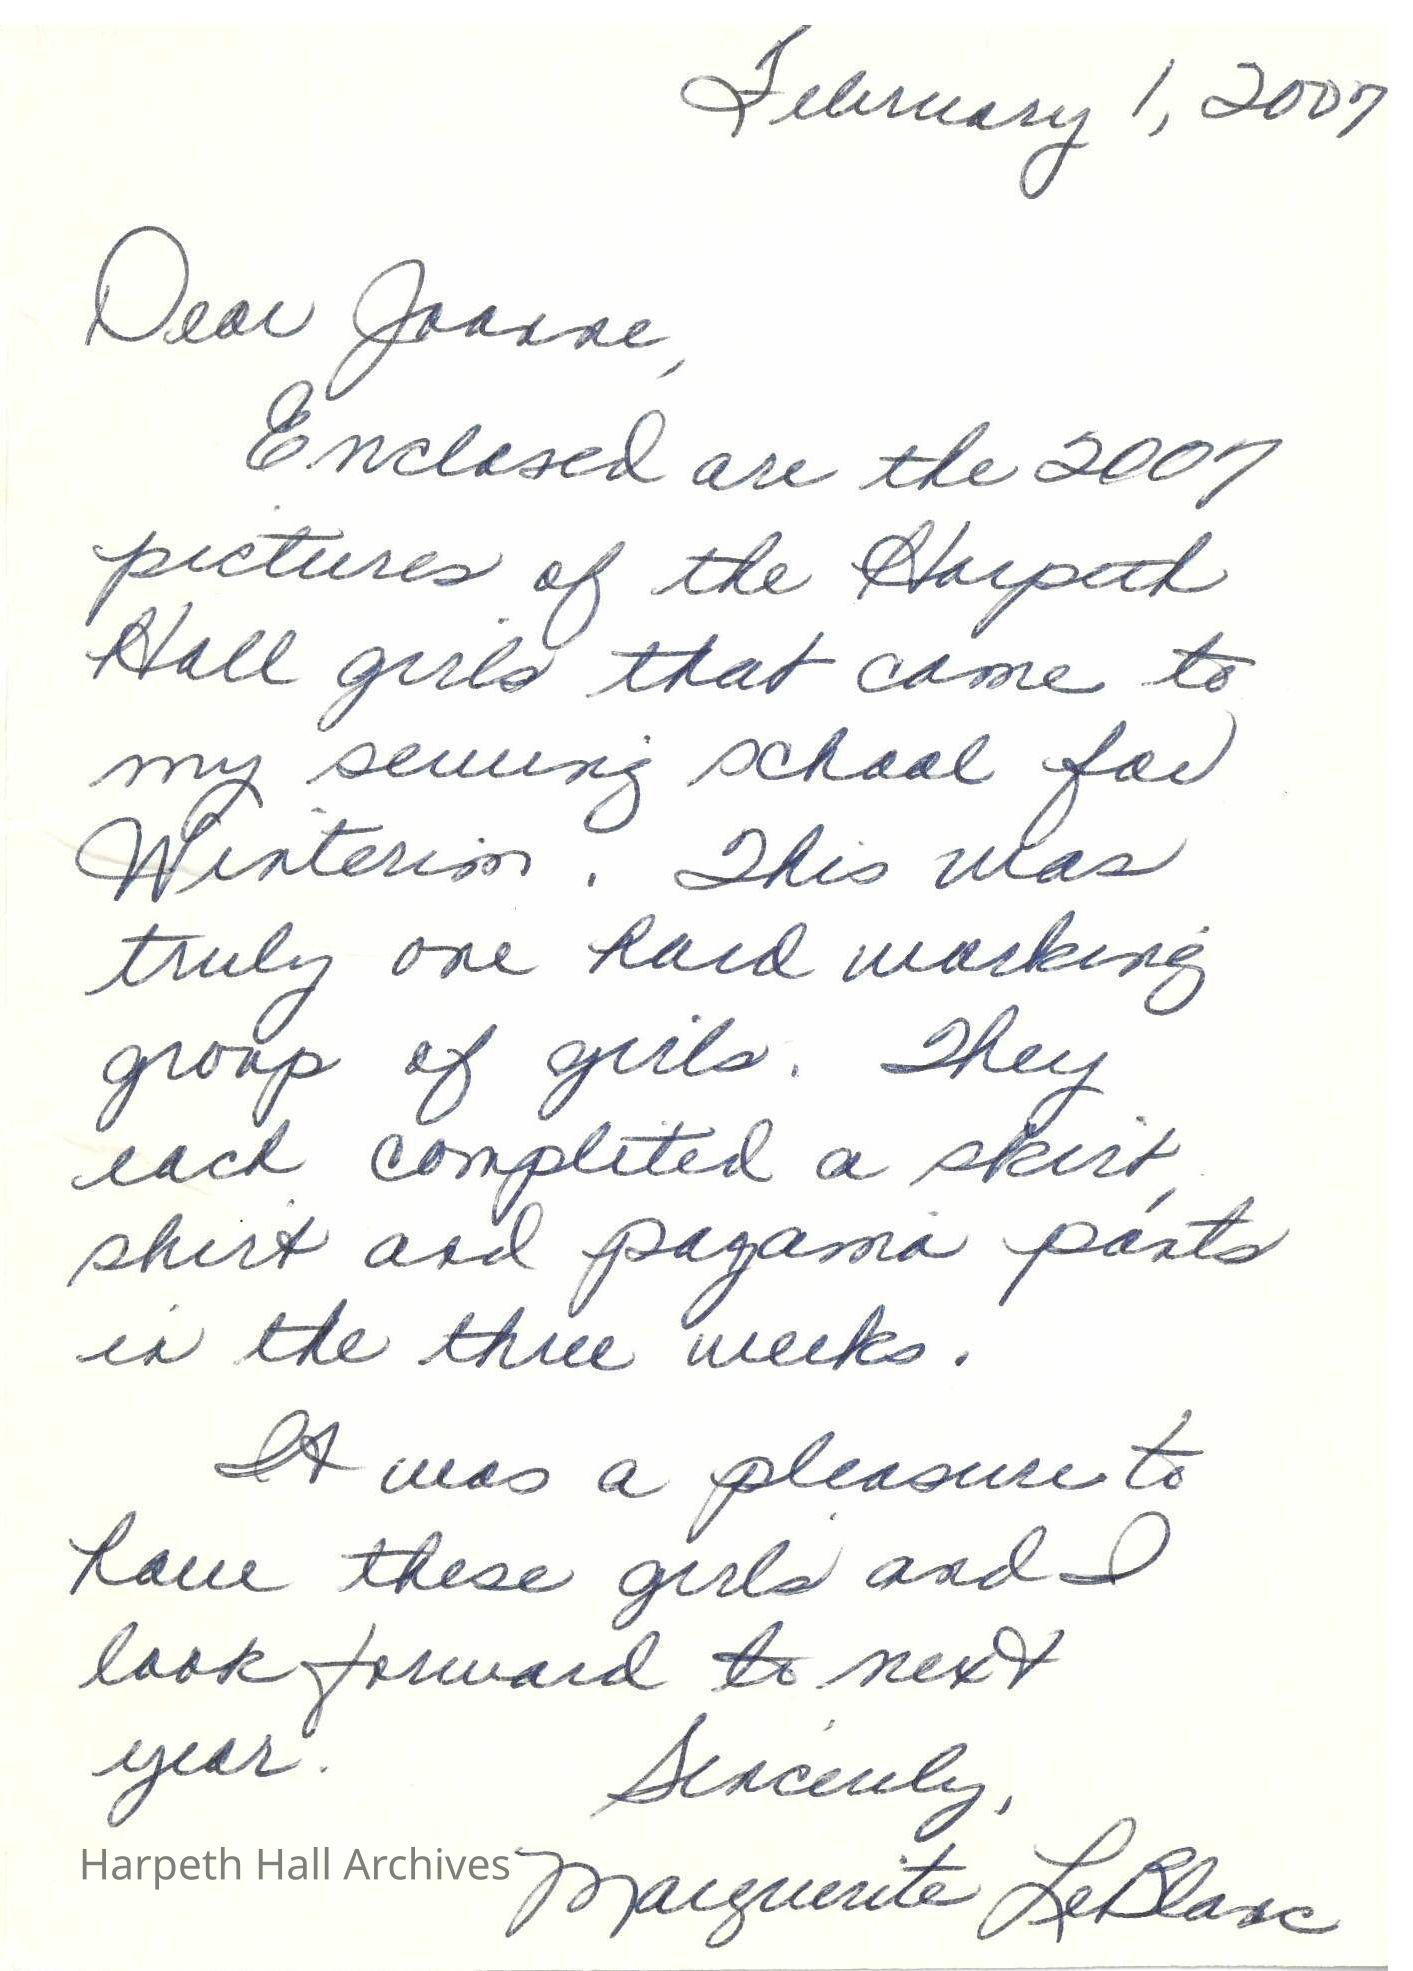 February 1, 2007
Dear Joanne,
Enclosed are the 2007
pictures of the Harpeth
Hall girls that came to
my sewing school for
Winterim. This was
truly one hard working
group of girls. They
each completed a skirt,
shirt and pagama pants
in the three weeks.
It was a pleasure to
have these girls and I
look forward to next
year.
Sincerely,
Marguerite LeBlanc
Harpeth Hall Archives